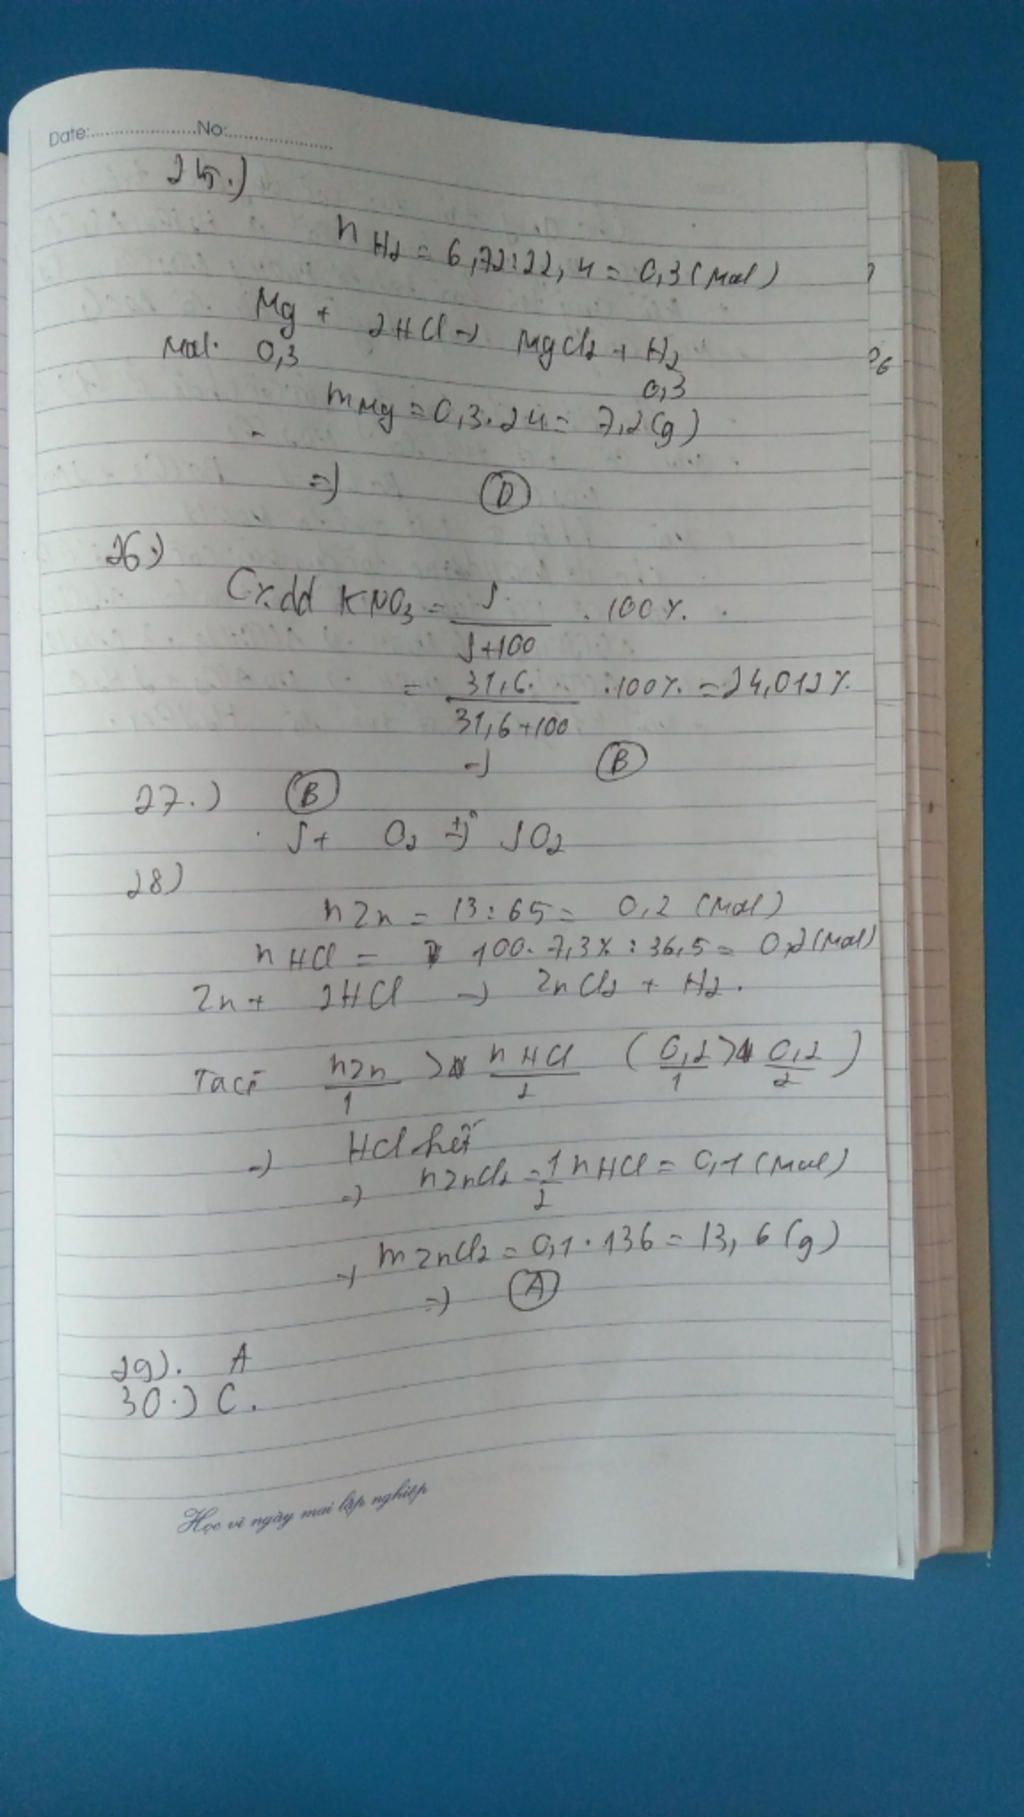 Date:..................No:..................
25.)
nH2 = 6,72:22,4 = 0,3 (mol)
Mg + 2HCl -> MgCl2 + H2
Mol. 0,3 0,3
mMg = 0,3.24 = 7,2(g)
=> D
26.)
C%dd KNO3 = S/(S+100) . 100%.
= 31,6/(31,6+100) .100% = 24,012%
=> B
27.) B
S + O2 t°-> SO2
28)
nZn = 13:65 = 0,2 (mol)
nHCl = 100.7,3%:36,5 = 0,2 (mol)
Zn + 2HCl -> ZnCl2 + H2.
Ta có nZn/1 > nHCl/2 (0,2/1 > 0,2/2)
=> HCl hết
=> nZnCl2 = 1/2 nHCl = 0,1 (mol)
=> mZnCl2 = 0,1.136 = 13,6 (g)
=> A
29). A
30.) C.
Học vì ngày mai lập nghiệp